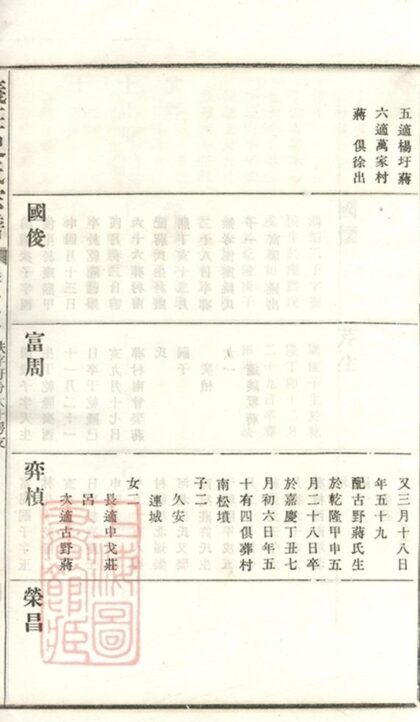 五適楊圩蔣
六適萬家村
蔣 俱徐出
國俊
富周
又三月十八日
年五十九
配古野蔣氏生
於乾隆甲申五
月二十八日卒
於嘉慶丁丑七
月初六日年五
十有四俱葬村
南松墳
子二
久安
連城
女二
長適中戈莊
呂
次適古野蔣
弈楨
榮昌
上海圖
書館藏